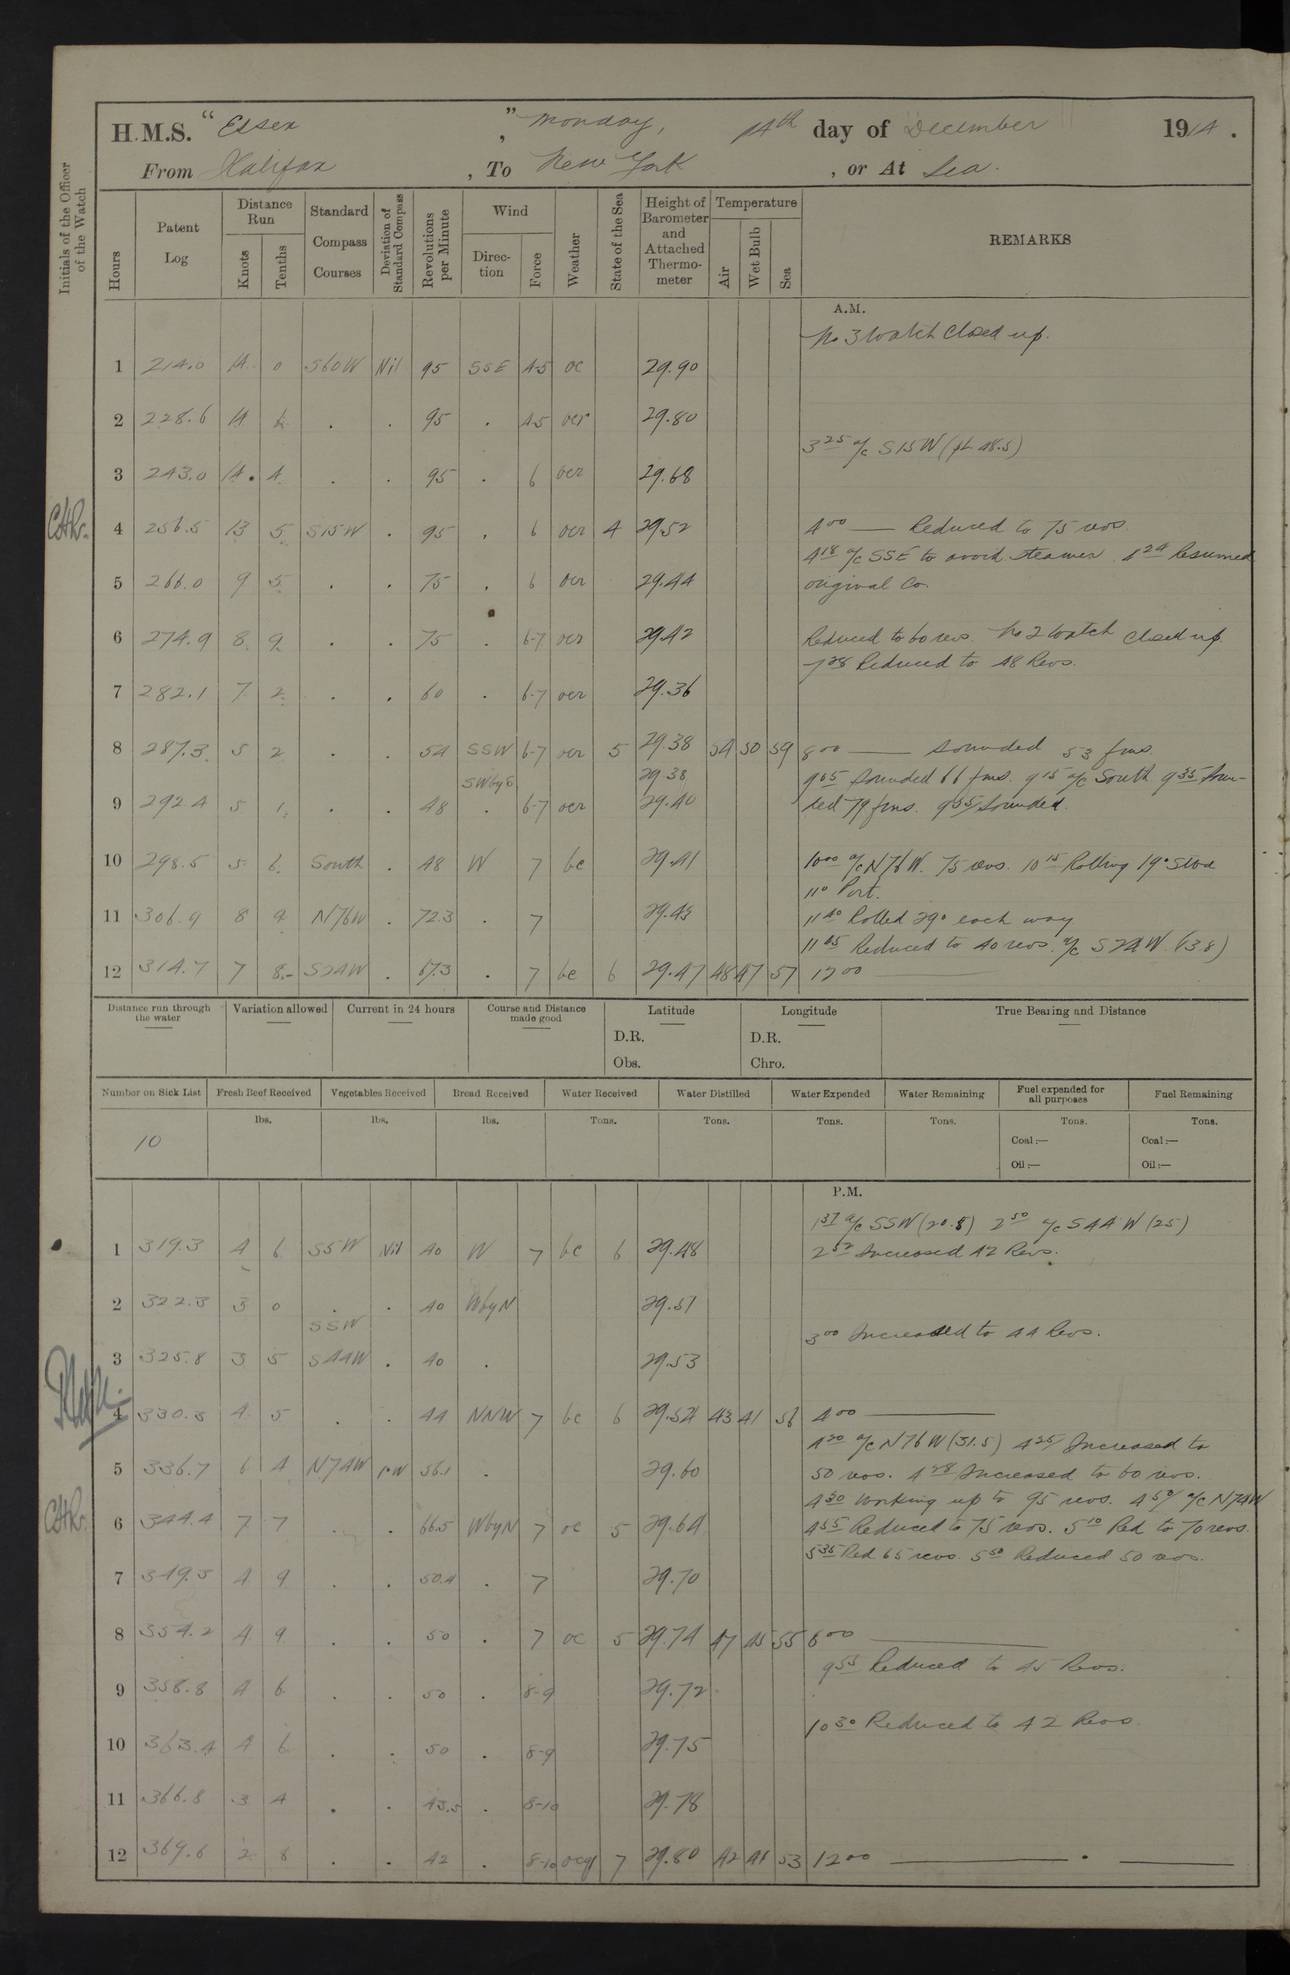 H.M.S. "Essex", Monday, 14th day of December 1914.
From Halifax, To New York, or At Sea.
Initials of the Officer of the Watch
Hours Patent Log Distance Run Knots Tenths Standard Compass Courses Deviation of Standard Compass Revolutions per Minute Wind Direction Force Weather State of the Sea Height of Barometer and Attached Thermometer Temperature Air Wet Bulb Sea REMARKS
A.M.
No 3 Watch Closed up.
1 214.0 14 0 S60W Nil 95 SSE 4-5 oc 29.90
2 228.6 14 6 . . 95 . 4-5 ocr 29.80
3 25 a/c S15W (pL 48.5)
3 243.0 14 4 . . 95 . 6 ocr 29.68
4 256.5 13 5 S15W . 95 . 6 ocr 4 29.52 4 00 — Reduced to 75 revs.
4 18 a/c SSE to avoid steamer. 4 24 Resumed
5 266.0 9 5 . . 75 . 6 ocr 29.44 original Co.
6 274.9 8 9 . . 75 . 6-7 ocr 29.42 Reduced to 60 revs. No 2 Watch closed up.
7 28 Reduced to 48 Revs.
7 282.1 7 2 . . 60 . 6-7 ocr 29.36
8 287.3 5 2 . . 54 SSW 6-7 ocr 5 29.38 54 50 59 8 00 — Sounded 53 fms.
SWbyS 29.38 9 05 Sounded 66 fms. 9 15 a/c South 9 35 Soun-
9 292.4 5 1 . . 48 . 6-7 ocr 29.40 ded 79 fms. 9 55 Sounded.
10 298.5 5 6 South . 48 W 7 bc 29.41 10 00 a/c N76W. 75 revs. 10 15 Rolling 19° Stbd
11° Port.
11 306.9 8 4 N76W . 72.3 . 7 29.45 11 40 Rolled 29° each way
11 45 Reduced to 40 revs. a/c S24W (13.8)
12 314.7 7 8 S24W . 67.3 . 7 bc 6 29.47 48 47 57 12 00
Distance run through the water Variation allowed Current in 24 hours Course and Distance made good Latitude Longitude True Bearing and Distance
D.R. D.R.
Obs. Chro.
Number on Sick List Fresh Beef Received Vegetables Received Bread Received Water Received Water Distilled Water Expended Water Remaining Fuel expended for all purposes Fuel Remaining
lbs. lbs. lbs. Tons. Tons. Tons. Tons. Tons. Tons.
10 Coal:— Coal:—
Oil:— Oil:—
P.M.
1 37 a/c SSW (20.8) 2 50 a/c S44W (25)
1 319.3 4 6 SSW Nil 40 W 7 bc 6 29.48 2 52 Increased 42 Revs.
2 322.3 3 0 . . 40 WbyN 29.51
SSW 3 00 Increased to 44 Revs.
3 325.8 3 5 S44W . 40 . 29.53
4 330.3 4 5 . . 44 NNW 7 bc 6 29.54 43 41 56 4 00
4 20 a/c N76W (31.5) 4 25 Increased to
5 336.7 6 4 N74W 1°W 56.1 . 29.60 50 revs. 4 28 Increased to 60 revs.
4 30 Working up to 95 revs. 4 50 a/c N74W
6 344.4 7 7 . . 66.5 WbyN 7 oc 5 29.64 4 55 Reduced to 75 revs. 5 10 Red to 70 revs.
5 35 Red 65 revs. 5 50 Reduced 50 revs.
7 349.3 4 9 . . 50.4 . 7 29.70
8 354.2 4 9 . . 50 . 7 oc 5 29.74 47 45 55 8 00
9 55 Reduced to 45 Revs.
9 358.8 4 6 . . 50 . 8-9 29.72
10 30 Reduced to 42 Revs.
10 363.4 4 6 . . 50 . 8-9 29.75
11 366.8 3 4 . . 43.5 . 8-10 29.78
12 369.6 2 8 . . 42 . 8-10 ocq 7 29.80 42 41 53 12 00